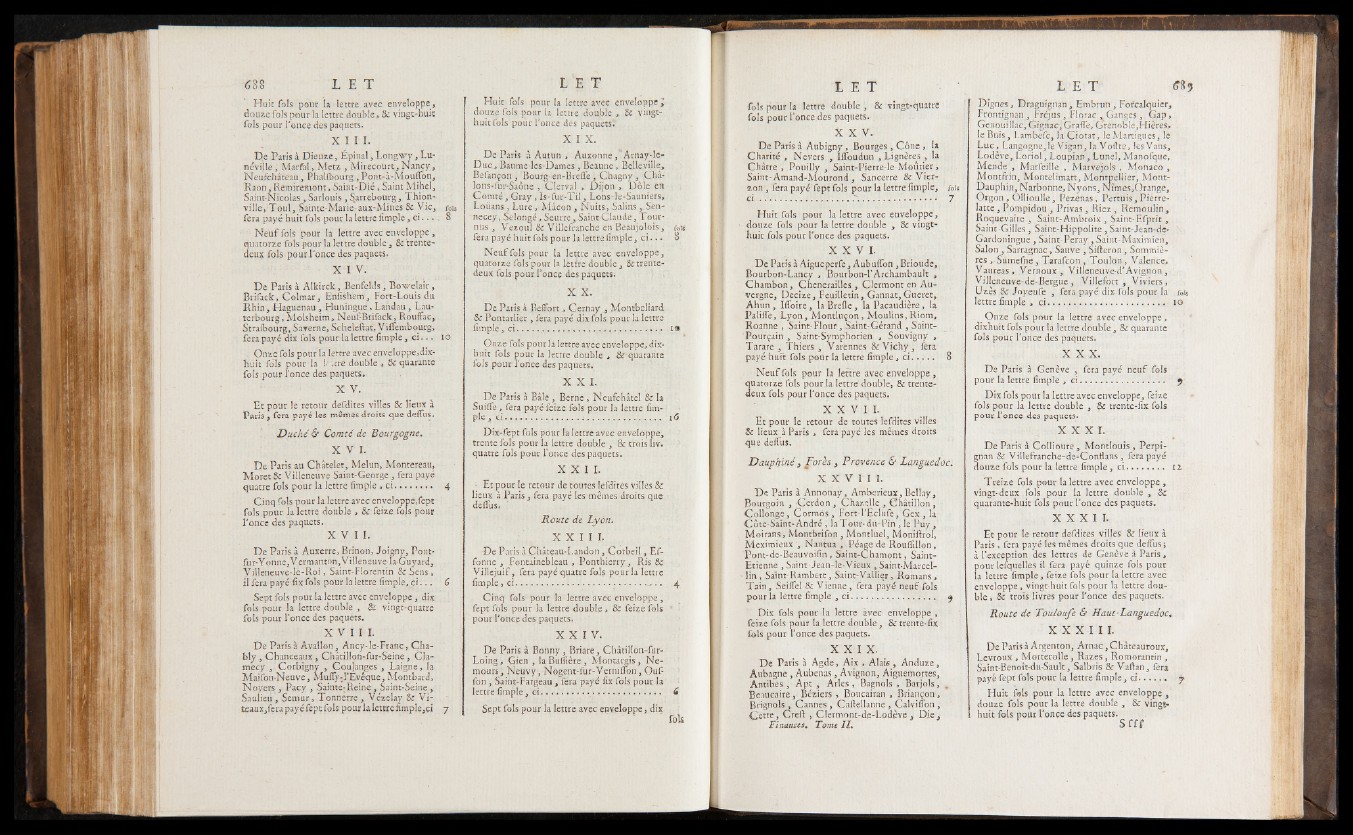 688 L E T
Huit sols pour la lettre avec enveloppe,
douze sols pour la lettre double, & vingt-huit
sols pour l'once des paquets.
X I I I.
De Paris à Dieuze, Épinal, Longwy, Lu-
néville, Toul, Marsal, Metz, Mirecourt, Nancy,
Neufchâteau, Phalsbourg, Pont-à-Mousson,
Raon, Remiremont, Saint-Dié, Saint Mihel,
Saint-Nicolas, Sarlouis, Sarrebourg, Thion-
ville, Toul, Sainte-Marie-aux-Mines & Vic, sols
sera payé huit sols pour la lettre simple, ci.... 8
Neuf sols pour la lettre avec enveloppe,
quatorze sols pour la lettre double, & trente-
deux sols pour l'once des paquets.
X I V.
De Paris à Alkirck, Benfelds, Bowelair,
Brisack, Colmar, Ensishem, Fort-Louis du
Rhin, Haguenau, Huningue, Landau, Lau-
terbourg, Molsheim, Neuf-Brisack, Rouffac,
Strasbourg, Saverne, Schelestat, Vissembourg,
sera payé dix sols pour la lettre simple, ci... 10
Onze sols pour la lettre avec enveloppe, dix-
huit sols pour la lettre double, & quarante
sols pour l'once des paquets.
X V.
Et pour le retour desdites villes & lieux à
Paris, sera payé les mêmes droits que dessus.
Duché & Comté de Bourgogne.
X V I.
De Paris au Châtelet, Melun, Montereau,
Moret & Villeneuve-Saint-George, sera payé
quatre sols pour la lettre simple, ci........ 4
Cinq sols pour la lettre avec enveloppe, sept
sols pour la lettre double, & seize sols pour
l'once des paquets.
X V I I.
De Paris à Auxerre, Brinon, Joigny, Pont-
sur-Yonne, Vermanton, Villeneuve-la-Guyard,
Villeneuve-le-Roi, Saint-Florentin & Sens,
il sera payé six sols pour la lettre simple, ci... 6
Sept sols pour la lettre avec enveloppe, dix
sols pour la lettre double, & vingt-quatre
sols pour l'once des paquets.
X V I I I.
De Paris à Avallon, Ancy-le-Franc, Cha-
bly, Chanceaux, Châtillon-sur-Seine, Cla-
mecy, Corbigny, Coulanges, Laigne, la
Maison-Neuve, Mussy-l'Evêque, Montbard,
Noyers, Pacy, Sainte-Reine, Saint-Seine,
Saulieu, Semur, Tonnerre, Vézelay & Vi-
teaux, sera payé sept sols pour la lettre simple, ci 7
L E T
Huit sols pour la lettre avec enveloppe,
douze sols pour la lettre double, & vingt-
huit sols pour l'once des paquets.
X I X.
De Paris à Autun, Auxonne, Arnay-le-
Duc, Baume-les-Dames, Beaune, Belleville,
Besançon, Bourg-en-Bresse, Chagny, Châ-
lons-sur-Saône, Clerval, Dijon, Dôle en
Comté, Gray, Is-sur-Til, Lons-le-Sauniers,
Louans, Lure, Mâcon, Nuits, Salins, Sen-
necey, Selongé, Seurre, Saint-Claude, Tour-
nus, Vezoul & Villefranche en Beaujolois, sols
sera payé huit sols pour la lettre simple, ci... 8
Neuf sols pour la lettre avec enveloppe,
quatorze sols pour la lettre double, & trente-
deux sols pour l'once des paquets.
X X.
De Paris à Bessort, Cernay, Montbeliard
& Pontarlier, sera payé dix sols pour la lettre
simple, ci........ 10
Onze sols pour la lettre avec enveloppe, dix-
huit sols pour la lettre double, & quarante
sols pour l'once des paquets.
X X I.
De Paris à Bâle, Berne, Neufchâtel & la
Suisse, sera payé seize sols pour la lettre sim-
ple, ci........ 16
Dix-sept sols pour la lettre avec enveloppe,
trente sols pour la lettre double, & trois liv.
quatre sols pour l'once des paquets.
X X I I.
Et pour le retour de toutes lesdites villes &
lieux à Paris, sera payé les mêmes droits que
dessus.
Route de Lyon.
X X I I I.
De Paris à Château-Landon, Corbeil, Es-
sonne, Fontainebleau, Ponthierry, Ris &
Villejuif, sera payé quatre sols pour la lettre
simple, ci........ 4
Cinq sols pour la lettre avec enveloppe,
sept sols pour la lettre double, & seize sols
pour l'once des paquets.
X X I V.
De Paris à Bonny, Briare, Châtillon-sur-
Loing, Gien, la Bussière, Montargis, Ne-
mours, Neuvy, Nogent-sur-Vernisson, Ous-
son, Saint-Fargeau, sera payé six sols pour la
lettre simple, ci........ 6
Sept sols pour la lettre avec enveloppe, dix
sols
L E T
sols pour la lettre double, & vingt-quatre
sols pour l'once des paquets.
X X V.
De Paris à Aubigny, Bourges, Cône, la
Charité, Nevers, Issoudun, Lignères, la
Châtre, Pouilly, Saint-Pierre-le-Monier,
Saint-Amand-Mourond, Sancerre & Vier-
zon, sera payé sept sols pour la lettre simple, sols
ci........ 7
Huit sols pour la lettre avec enveloppe,
douze sols pour la lettre double, & vingt-
huit sols pour l'once des paquets.
X X V I.
De Paris à Aigueperse, Aubusson, Brioude,
Bourbon-Lancy, Bourbon-l'Archambault,
Chambon, Chenerailles, Clermont en Au-
vergne, Decize, Feuilletin, Gannat, Gueret,
Ahun, Issoire, la Bresle, la Pacaudière, la
Palisse, Lyon, Montluçon, Moulins, Riom,
Roanne, Saint-Flour, Saint-Gérand, Saint-
Pourçain, Saint-Symphorien, Souvigny,
Tarare, Thiers, Varennes & Vichy, sera
payé huit sols pour la lettre simple, ci..... 8
Neuf sols pour la lettre avec enveloppe,
quatorze sols pour la lettre double, & trente-
deux sols pour l'once des paquets.
X X V I I.
Et pour le retour de toutes lesdites villes
& lieux à Paris, sera payé les mêmes droits
que dessus.
Dauphiné, Forès, Provence & Languedoc.
X X V I I I.
De Paris à Annonay, Amberieux, Bellay,
Bourgoin, Cerdon, Chazelle, Châtillon,
Collonge, Cormos, Fort-l'Ecluse, Gex, la
Côte-Saint-André, la Tour-du-Pin, le Puy,
Moirans, Montbrison, Montluel, Monistrol,
Meximieux, Nantua, Péage de Roussillon,
Pont-de-Beauvoisin, Saint-Chamont, Saint-
Etienne, Saint-Jean-le-Vieux, Saint-Marcel-
lin, Saint Rambert, Saint-Vallier, Romans,
Tain, Seissel & Vienne, sera payé neuf sols
pour la lettre simple, ci........ 9
Dix sols pour la lettre avec enveloppe,
seize sols pour la lettre double, & trente-six
sols pour l'once des paquets.
X X I X.
De Paris à Agde, Aix, Alais, Anduze,
Aubagne, Aubenas, Avignon, Aiguemortes,
Antibes, Apt, Arles, Bagnols, Barjols,
Beaucaire, Béziers, Boucairan, Briançon,
Brignols, Cannes, Castellanne, Calvisson,
Cette, Crest, Clermont-de-Lodève, Die,
Finances. Tome II.
L E T 689
Dignes, Draguignan, Embrun, Forcalquier,
Frontignan, Fréjus, Florac, Ganges, Gap,
Genouillac, Gignac, Grasse, Grenoble, Hières,
le Buis, Lambesc, la Ciotat, le Martigues, le
Luc, Langogne, le Vigan, la Voste, les Vans,
Lodève, Loriol, Loupian, Lunel, Manosque,
Mende, Marseille, Marvejols, Monaco,
Montfrin, Montelimart, Montpellier, Mont-
Dauphin, Narbonne, Nyons, Nîmes, Orange,
Orgon, Ollioulle, Pezénas, Pertuis, Pierre-
latte, Pompidou, Privas, Riez, Remoulin,
Roquevaire, Saint-Ambroix, Saint-Esprit,
Saint-Gilles, Saint-Hippolite, Saint-Jean-de-
Gardoningue, Saint-Peray, Saint-Maximien,
Salon, Sarragnac, Sauve, Sisteron, Sommiè-
res, Sumesne, Tarascon, Toulon, Valence,
Vaureas, Vernoux, Villeneuve-d'Avignon,
Villeneuve-de-Bergue, Villefort, Viviers,
Uzès & Joyeuse, sera payé dix sols pour la sols
lettre simple, ci........ 10
Onze sols pour la lettre avec enveloppe,
dixhuit sols pour la lettre double, & quarante
sols pour l'once des paquets.
X X X.
De Paris à Genève, sera payé neuf sols
pour la lettre simple, ci........ 9
Dix sols pour la lettre avec enveloppe, seize
sols pour la lettre double, & trente-six sols
pour l'once des paquets.
X X X I.
De Paris à Collioure, Montlouis, Perpi-
gnan & Villefranche-de-Conflans, sera payé
douze sols pour la lettre simple, ci........ 12
Treize sols pour la lettre avec enveloppe,
vingt-deux sols pour la lettre double, &
quarante-huit sols pour l'once des paquets.
X X X I I.
Et pour le retour desdites villes & lieux à
Paris, sera payé les mêmes droits que dessus;
à l'exception des lettres de Genève à Paris,
pour lesquelles il sera payé quinze sols pour
la lettre simple, seize sols pour la lettre avec
enveloppe, vingt-huit sols pour la lettre dou-
ble, & trois livres pour l'once des paquets.
Route de Toulouse & Haut-Languedoc.
X X X I I I.
De Paris à Argenton, Arnac, Châteauroux,
Levroux, Morterolle, Razes, Romorantin,
Saint-Benoit-du-Sault, Salbris & Vastan, sera
payé sept sols pour la lettre simple, ci...... 7
Huit sols pour la lettre avec enveloppe,
douze sols pour la lettre double, & vingt-
huit sols pour l'once des paquets.
S s s s